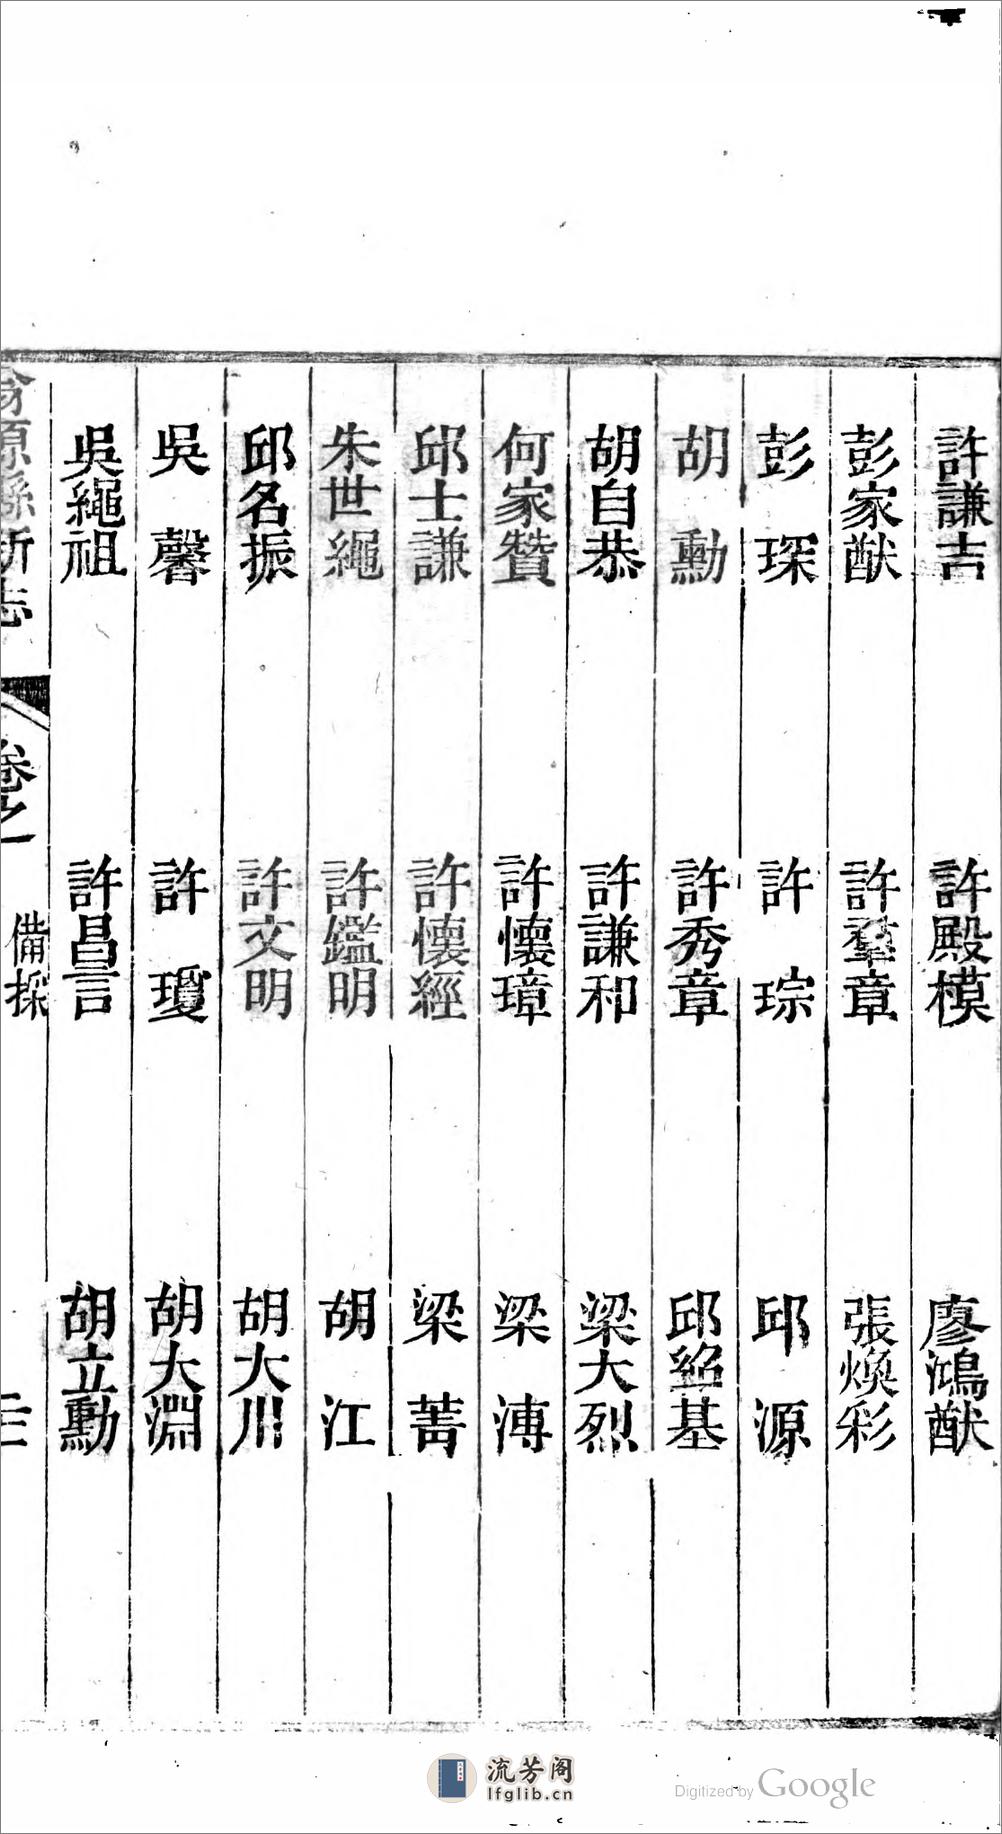 許謙吉 許殿模 廖鴻猷
彭家猷 許羣章 張煥彩
彭琛 許琮 邱源
胡勳 許秀章 邱紹基
胡自恭 許謙和 梁大烈
何家贊 許懷璋 梁溥
邱士謙 許懷經 梁菁
朱世繩 許鑑明 胡江
邱名振 許文明 胡大川
吳馨 許瓊 胡大淵
吳繩祖 許昌言 胡立勳
翁源縣新志 卷之一 備採
流芳阁
lfglib.cn
Digitized by Google